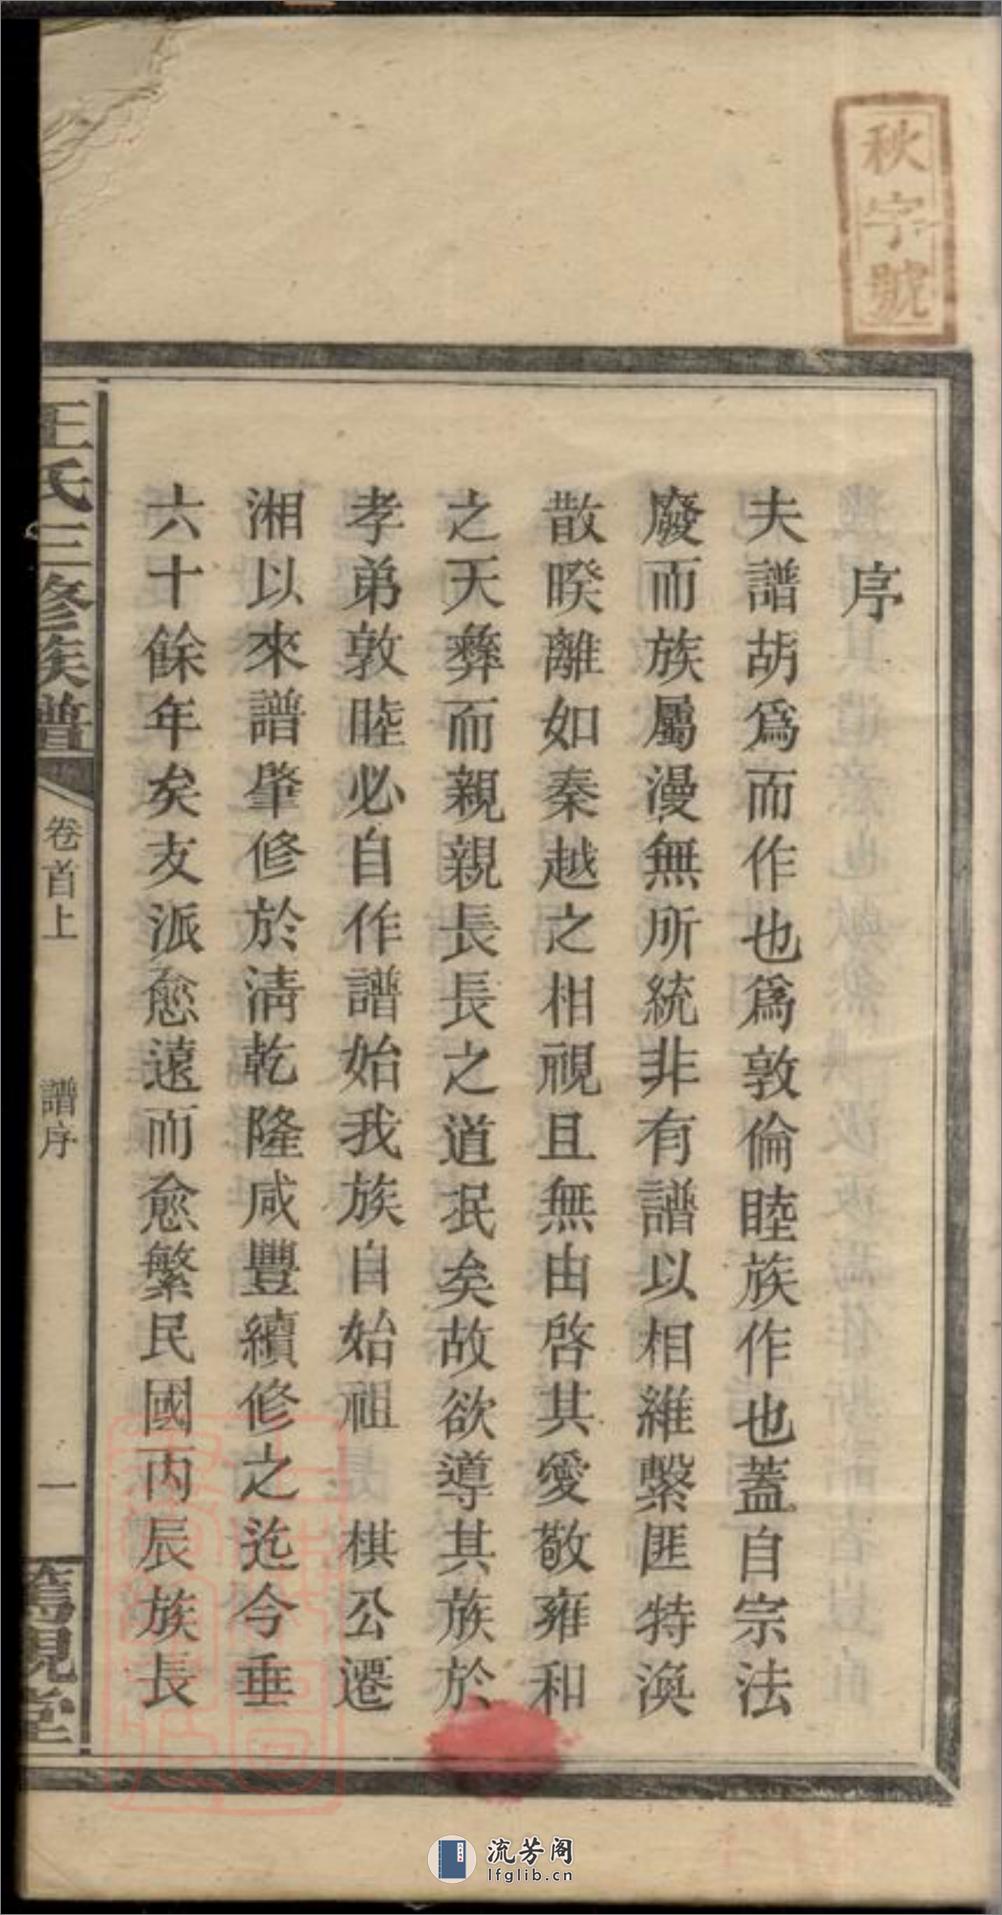 秋字號
序
夫譜胡爲而作也爲敦倫睦族作也蓋自宗法
廢而族屬漫無所統非有譜以相維繫匪特渙
散暌離如秦越之相視且無由啓其愛敬雍和
之天彝而親親長長之道泯矣故欲導其族於
孝弟敦睦必自作譜始我族自始祖 棋公遷
湘以來譜肇修於淸乾隆咸豐續修之迄今垂
六十餘年矣支派愈遠而愈繁民國丙辰族長
王氏三修族譜
卷首上 譜序 一
篤親堂
流芳阁
lfglib.cn